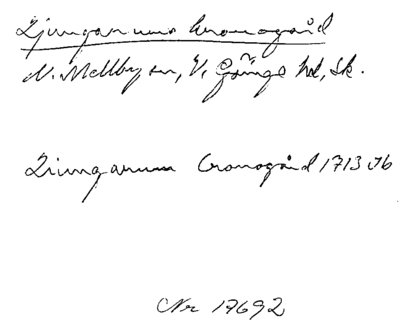 Ljungarums kronogård
N. Mellby sn, V. Göinge hd, Sk.
Liungarum Cronogård 1713 Jb
Nr 17692